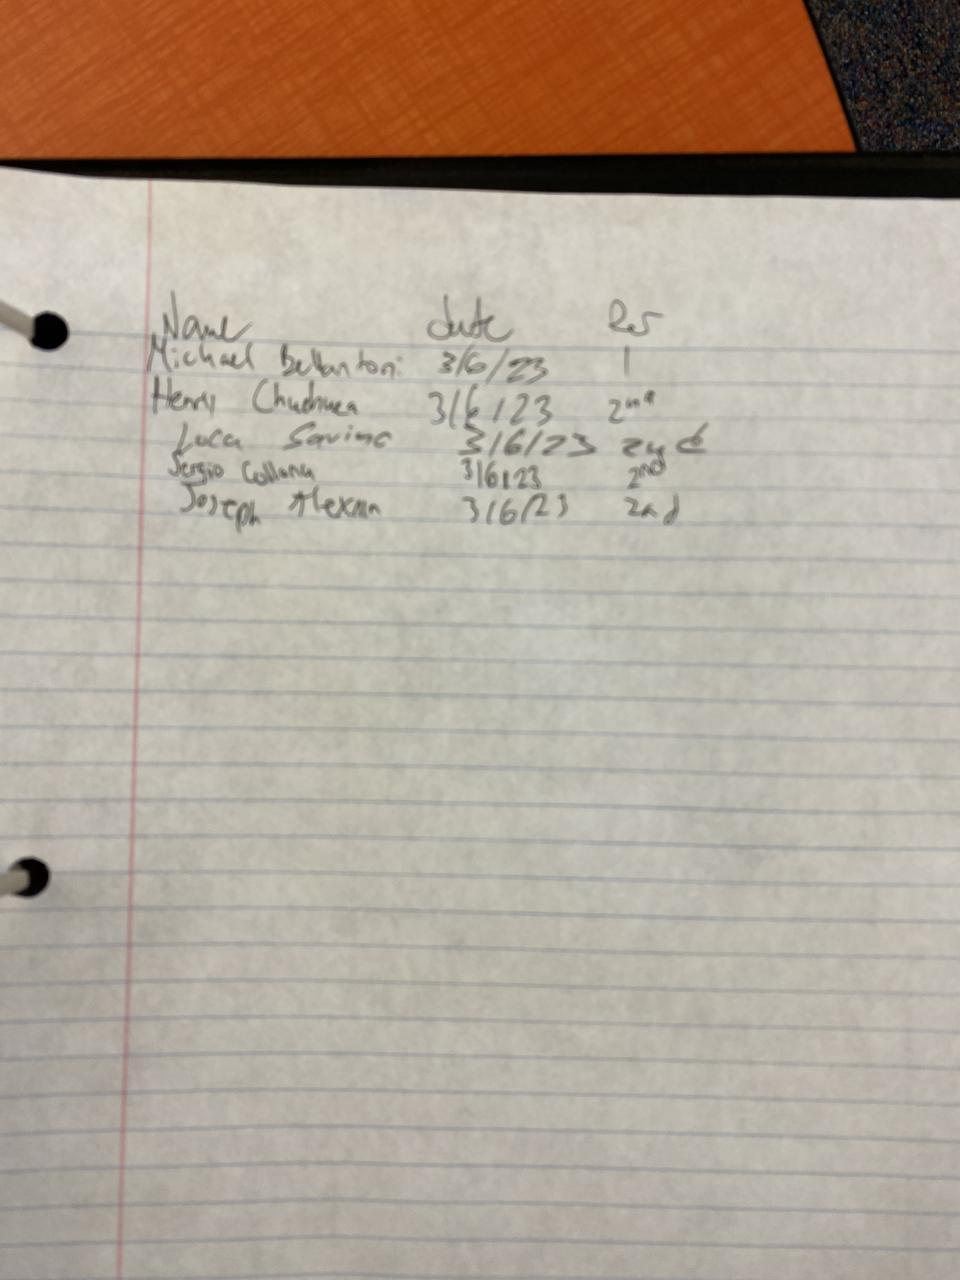 Name date
Michael Bellantoni 3/6/23 1
Henry 3/6/23 2nd
Luca Savino 3/6/23 2nd
Sergio Collana 3/6/23 2nd
Joseph 3/6/23 2nd